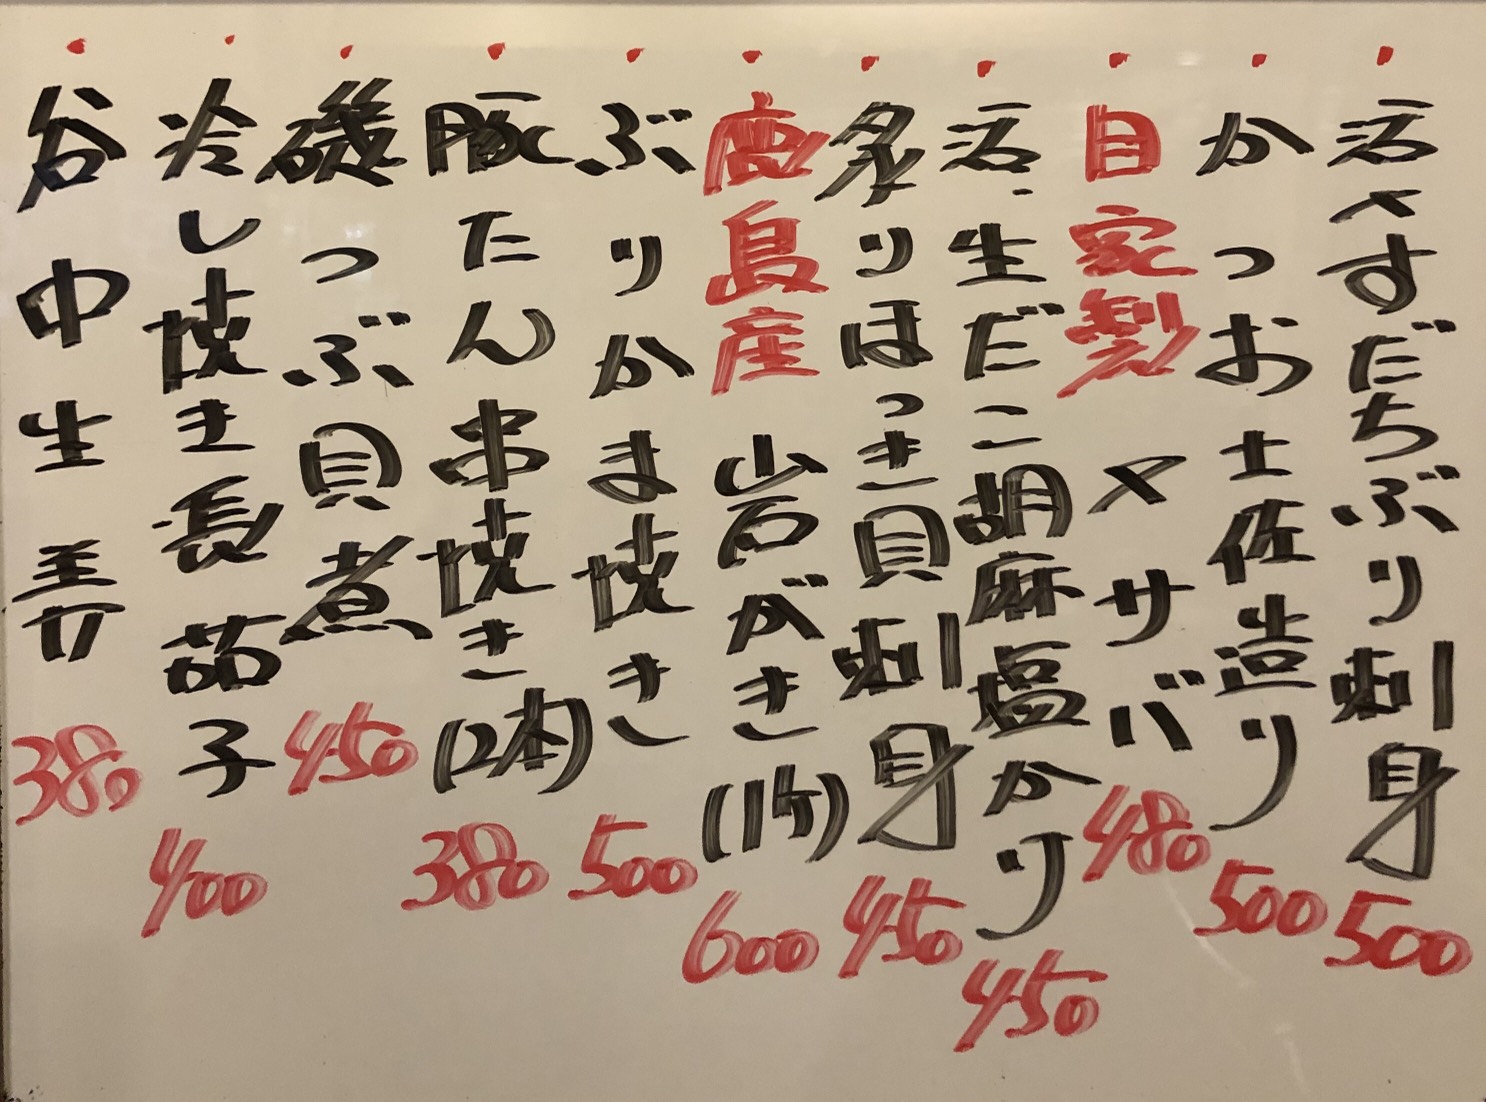 活〆すだちぶり刺身 500
かつお土佐造り 500
自家製 〆サバ 480
活、生だこ胡麻塩かり 450
炙りほっき貝刺身 450
鹿島産 岩がき(1ケ) 600
ぶりかま焼き 500
豚たん串焼き(2本) 380
磯つぶ貝煮 450
冷し焼き長茄子 400
谷中生姜 380